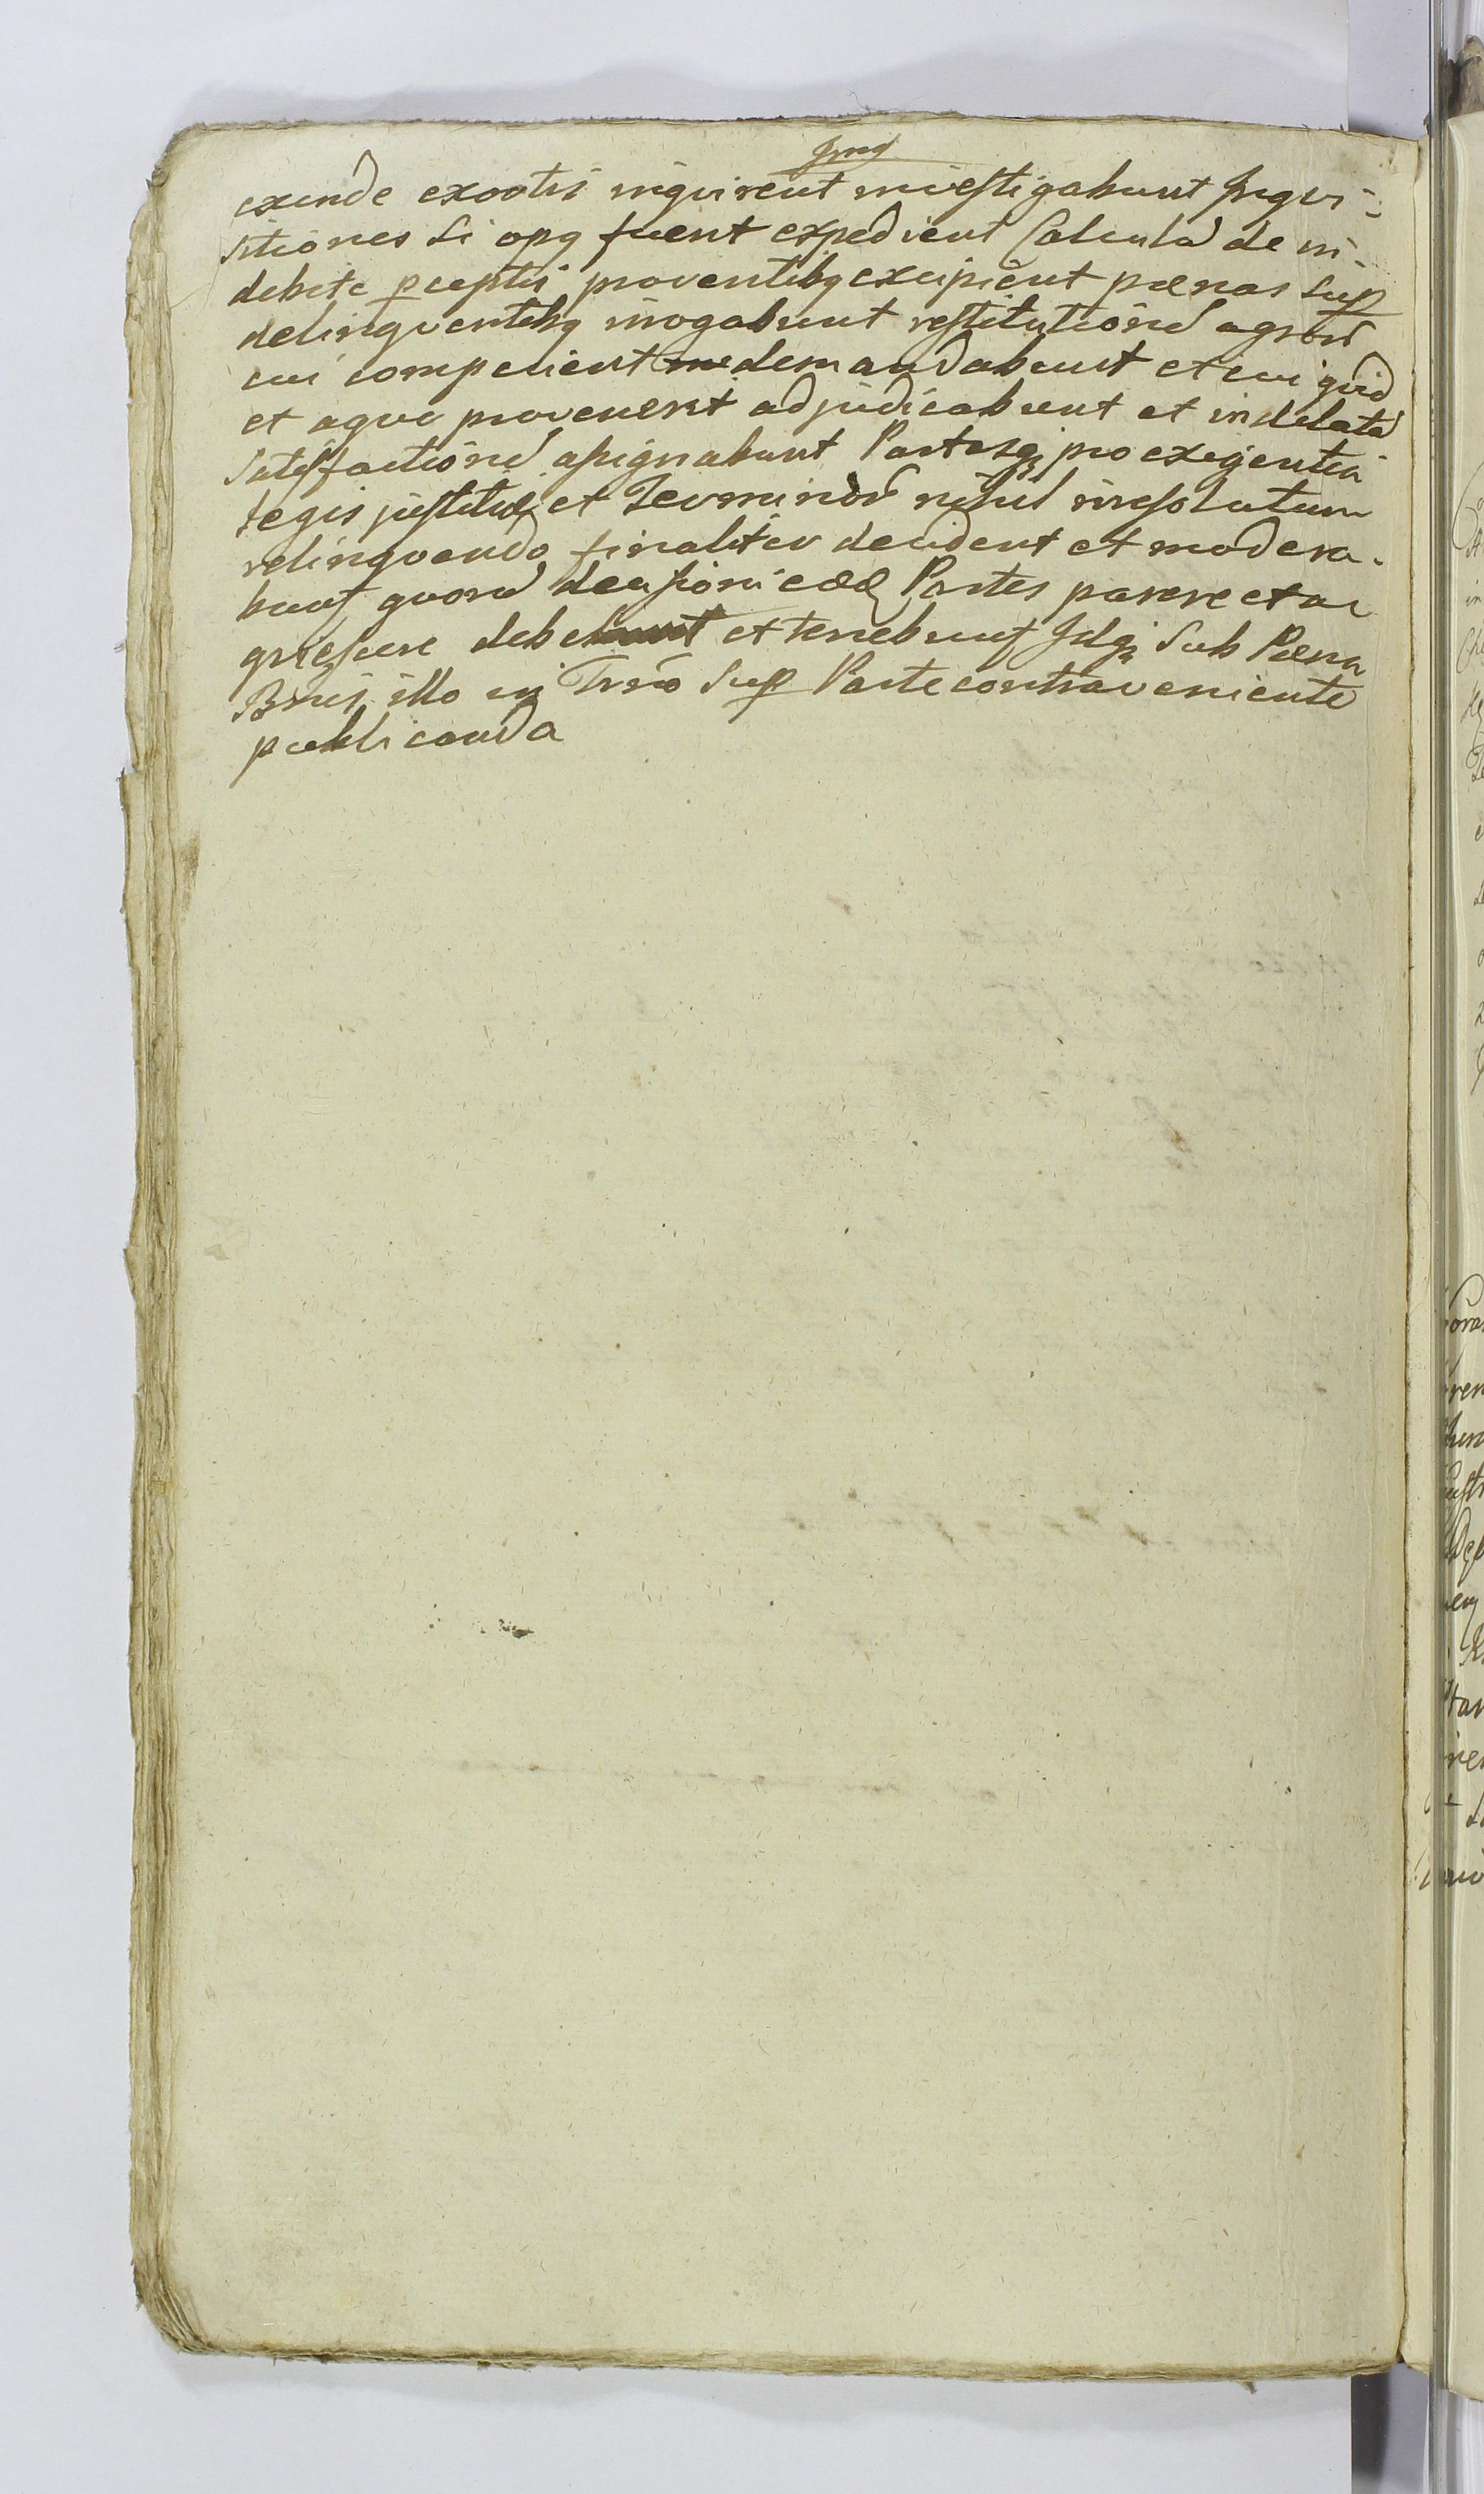 exinde exortis inquirent investigabunt Inqvi-
sitiones si opq fuerit expedient Calculū de in-
debite pceptis proventibq excipient pœnas sup
delinqventibq irrogabunt restitutionē agrorū
cui competierit demandabunt et cui qvid
et aqvo provenerit adjudicabunt et indilatā
satisfactionē assignabunt Partesq pro exigentia
legis justitiæ et Terminorū nihil irresolutum
relinqvendo finaliter decident et modera-
bunt qvorū decisioni eædē Partes parere et ac
qviescere debebunt et tenebunt Idq sub Pœna
Bnis illo in Trno sup Parte contraveniente
publicanda